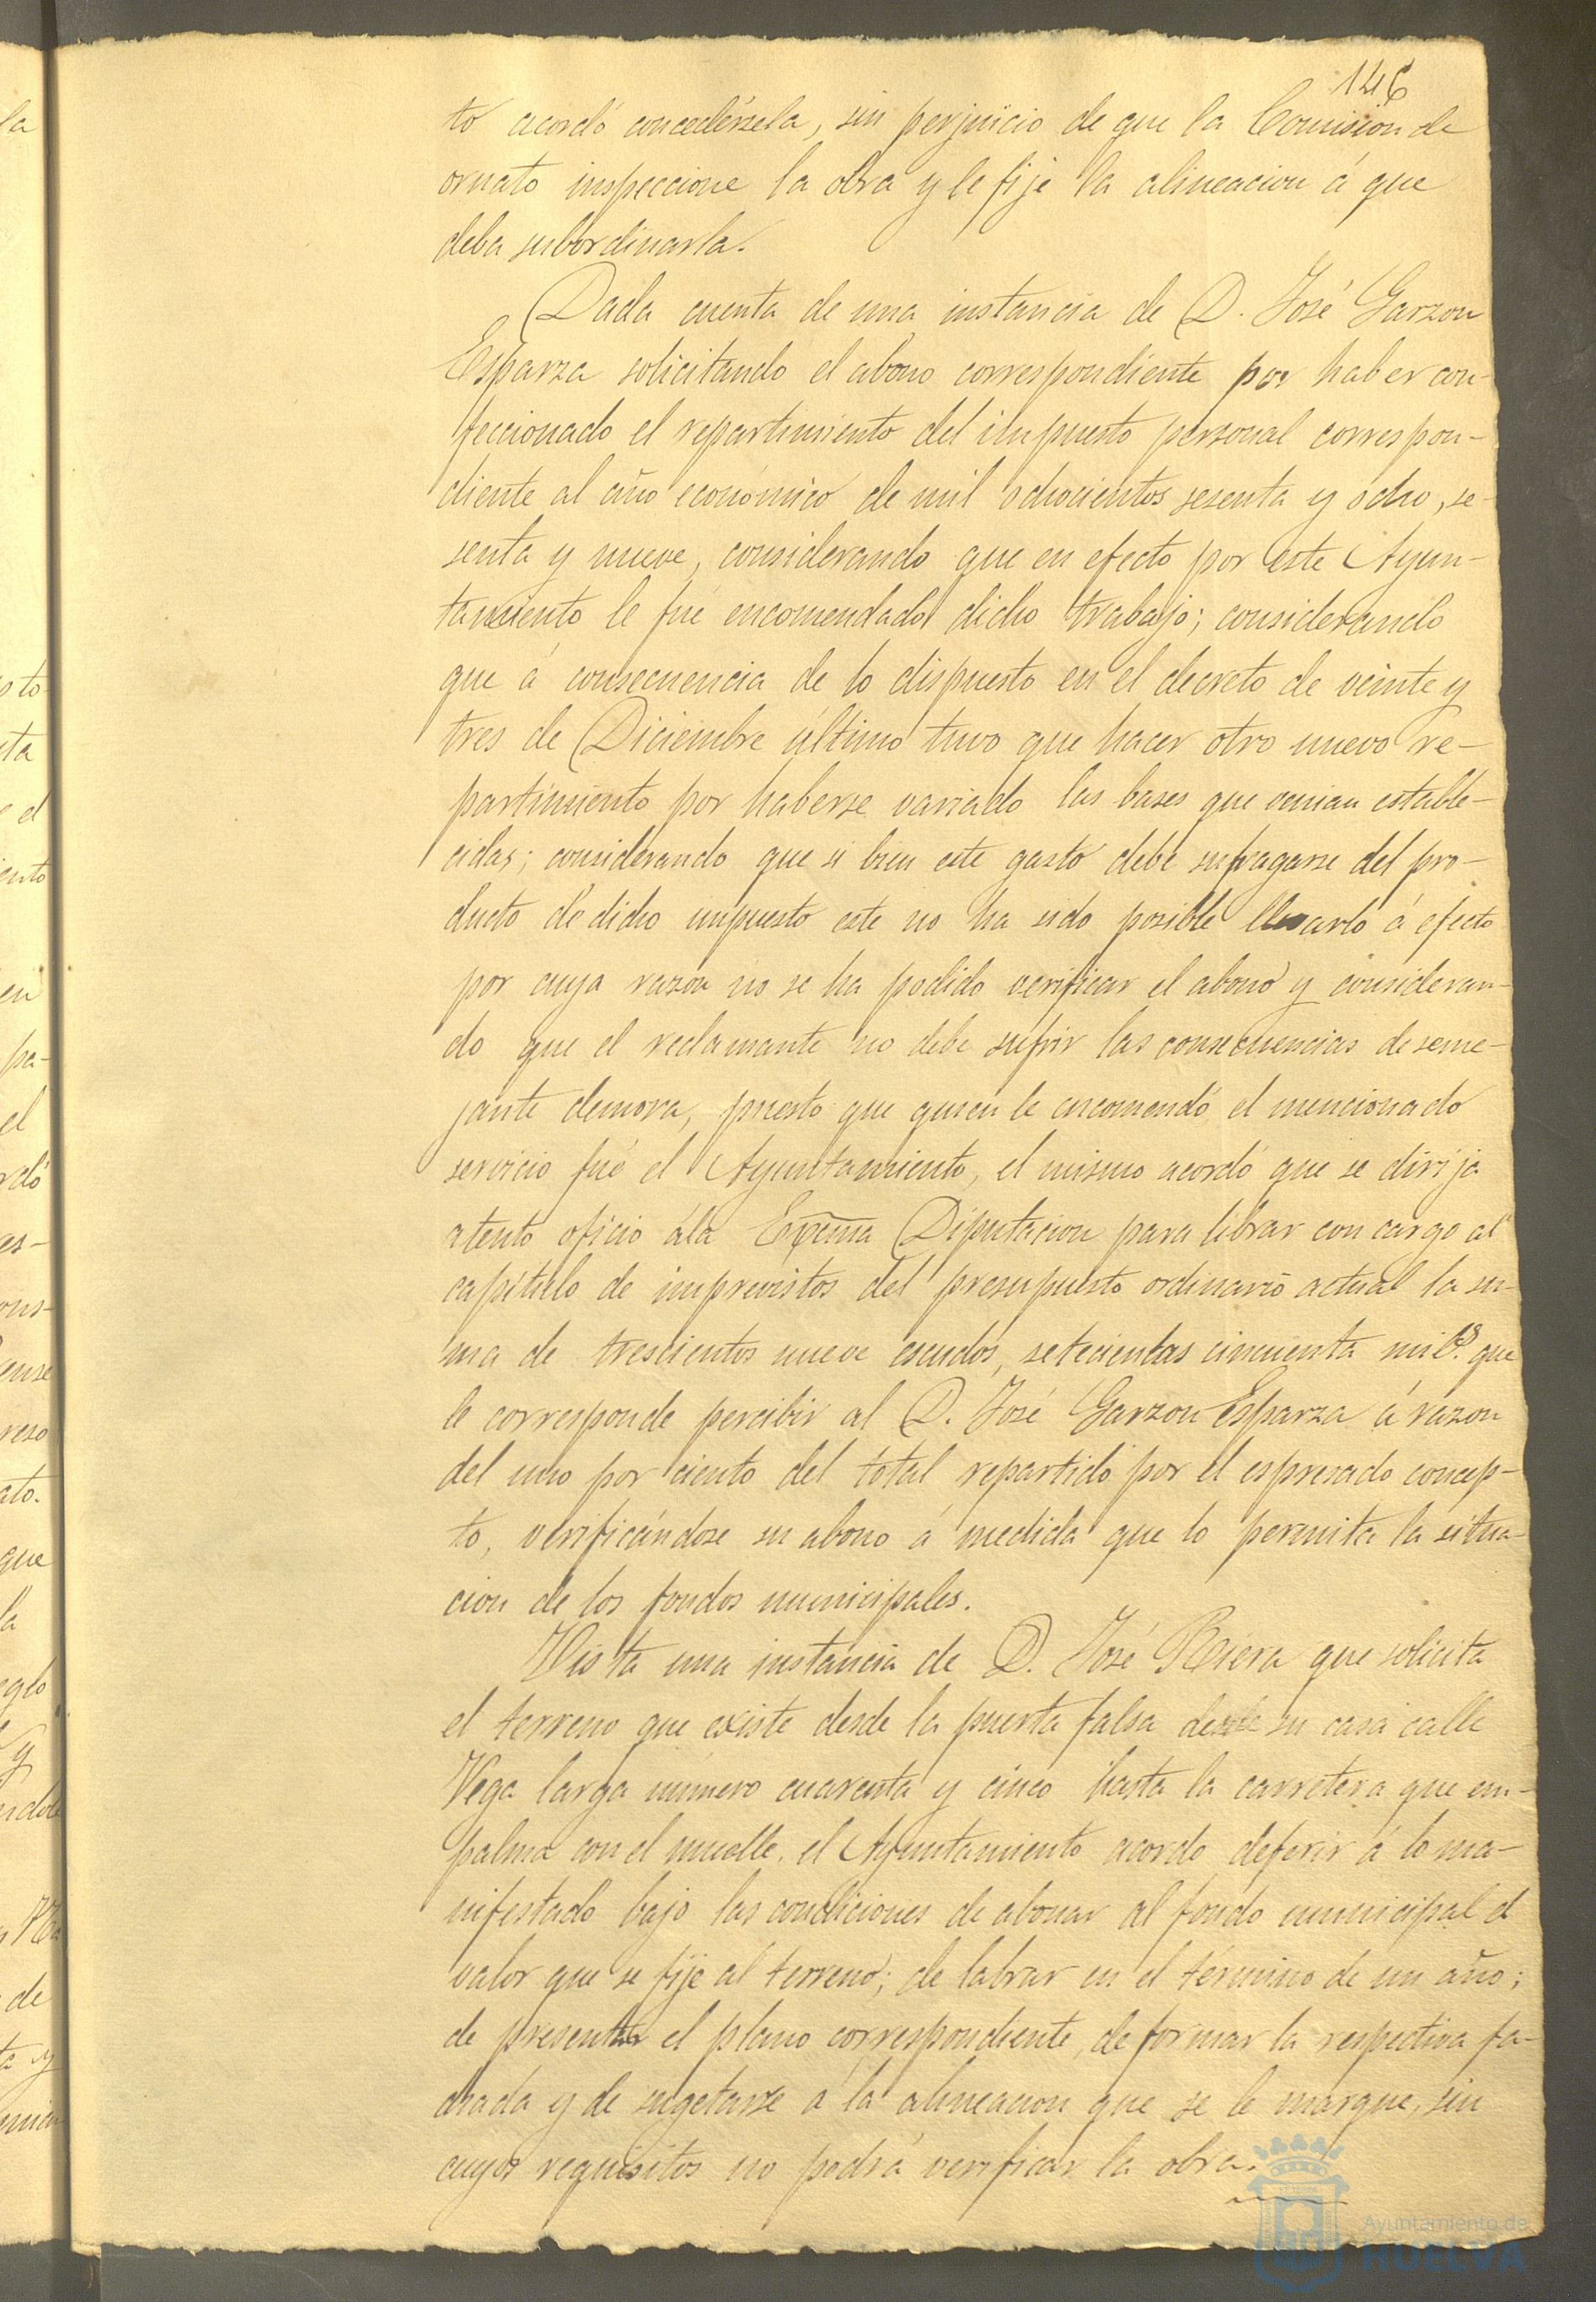 146
to acordó concedérsela, sin perjuicio de que la Comision de
ornato inspeccione la obra y le fije la alineacion á que
deba subordinarla.
Dada cuenta de una instancia de D. José Garzon
Esparza solicitando el abono correspondiente por haber con-
feccionado el repartimiento del impuesto personal correspon-
diente al año económico de mil ochocientos sesenta y ocho, se-
senta y nueve, considerando que en efecto por este Ayun-
tamiento le fué encomendado dicho trabajo; considerando
que á consecuencia de lo dispuesto en el decreto de veinte y
tres de Diciembre último tuvo que hacer otro nuevo re-
partimiento por haberse variado las bases que venian estable-
cidas; considerando que si bien este gasto debe sufragarse del pro-
ducto de dicho impuesto este no ha sido posible llevarlo á efecto
por cuya razon no se ha podido verificar el abono y consideran-
do que el reclamante no debe sufrir las consecuencias de seme-
jante demora, puesto que quien le encomendó el mencionado
servicio fué el Ayuntamiento, el mismo acordó que se dirija
atento oficio á la Excma Diputacion para librar con cargo al
capítulo de imprevistos del presupuesto ordinario actual la su-
ma de trescientos nueve escudos, setecientas cincuenta mils. que
le corresponde percibir al D. José Garzon Esparza á razon
del uno por ciento del total repartido por el espresado concep-
to, verificándose su abono á medida que lo permita la situa-
cion de los fondos municipales.
Vista una instancia de D. José Riera que solicita
el terreno que existe desde la puerta falsa de su casa calle
Vega larga número cuarenta y cinco hasta la carretera que em-
palma con el muelle, el Ayuntamiento acordo deferir á lo ma-
nifestado bajo las condiciones de abonar al fondo municipal el
valor que se fije al terreno; de labrar en el término de un año;
de presentar el plano correspondiente, de formar la respectiva fa-
chada y de sugetarse á la alineacion que se le marque, sin
cuyos requisitos no podrá verificar la obra.
Ayuntamiento de
HUELVA